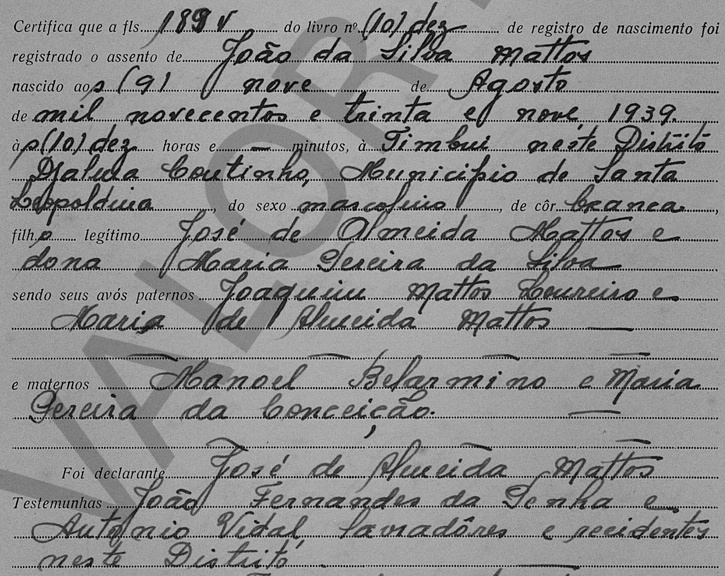 Certifica que a fls. 189 v do livro nº (10) dez de registro de nascimento foi
registrado o assento de João da Silva Mattos
nascido aos (9) nove de Agosto
de mil novecentos e trinta e nove 1939.
às (10) dez horas e — minutos, à Timbui neste Distrito
Djalma Coutinho, Municipio de Santa
Leopoldina do sexo masculino, de côr branca,
filho legítimo José de Almeida Mattos e
dona Maria Pereira da Silva
sendo seus avós paternos Joaquim Mattos Loureiro e
Maria de Almeida Mattos —
e maternos Manoel Belarmino e Maria
Pereira da Conceição. —
Foi declarante José de Almeida Mattos
Testemunhas João Fernandes da Penha e
Antônio Vidal lavradôres e recidentes
neste Distrito.
VALOR